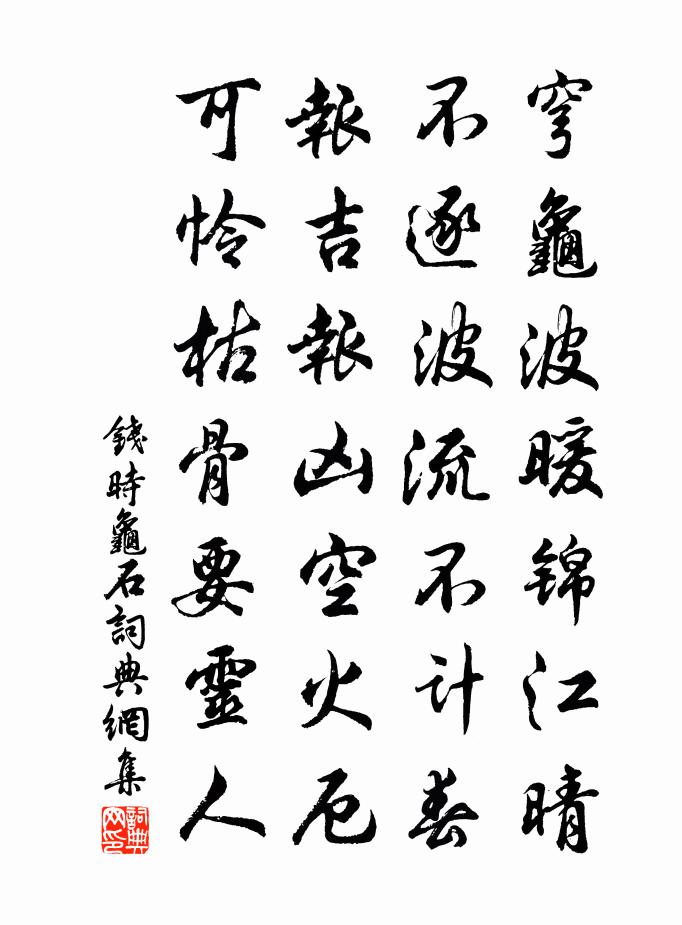 穹龜波暖錦江晴
不逐波流不計春
報吉報凶空火厄
可怜枯骨要靈人
錢時龜石詞典網集
詞典網印